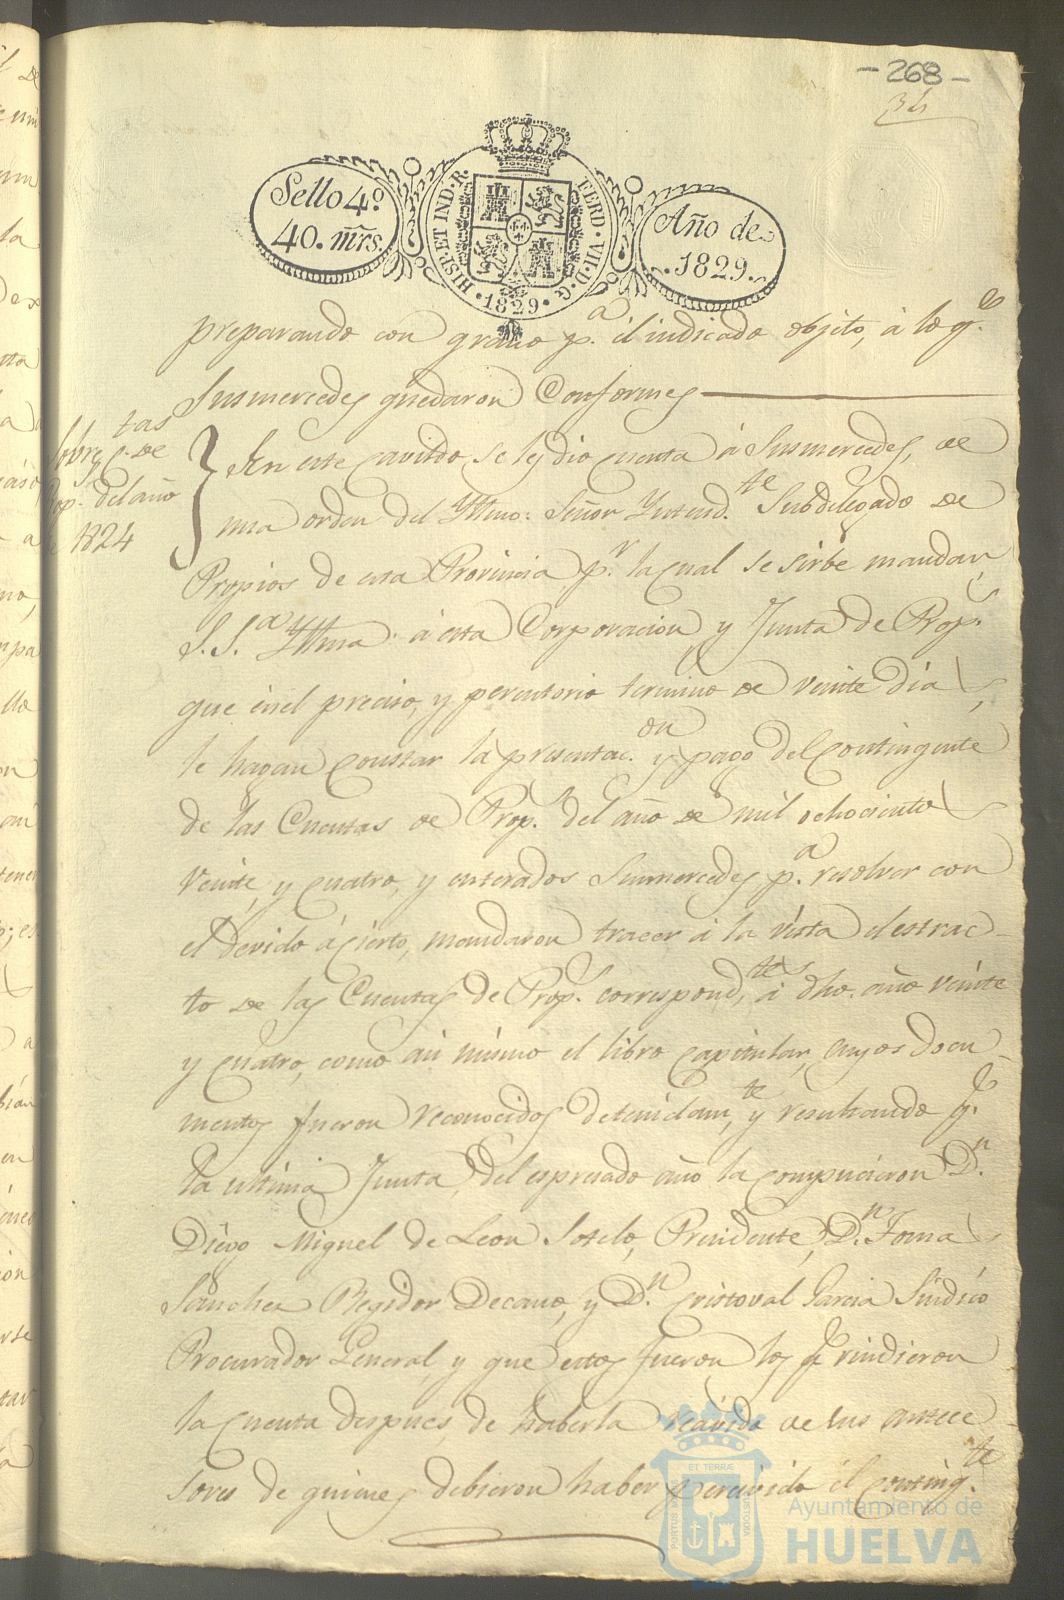 -268-
Sello 4º
40. mrs.
HISP. ET IND. R.
FERD. VII. D. G.
. 1829 .
Año de
. 1829 .
preparando con grano p.ª el indicado objeto, á lo q.e
Susmercedes quedaron Conformes
Sobre c.tas de
Pop. del año
de 1824
En este cavildo se les dio cuenta á Susmercedes, de
una orden del Yltmo. Señor Yntend.te Subdelegado de
Propios de esta Provincia p.r la cual se sirbe mandar
S. S.ª Yltma. á esta Corporacion y Junta de Prop.s
que en el preciso, y perentorio termino de veinte dias,
le hagan constar la presentac.on y pago del contingente
de las Cuentas de Prop.s del año de mil ochocientos
veinte, y cuatro, y enterados Susmercedes p.ª resolver con
el devido ácierto, mandaron traeer á la vista el estrac-
to de las Cuentas de Prop.s correspond.tes á dho. año veinte
y cuatro, como asi mismo el libro capitular, cuyos docu-
mentos fueron reconocidos detenidam.te, y resultando q.e
la ultima Junta, del espresado año la compucieron D.n
Diego Miguel de Leon Sotelo, Precidente, D.n Tomas
Sanchez Regidor Decano, y D.n Cristoval Garcia Sindico
Procurador General, y que estos fueron los q.e rindieron
la cuenta despues de haberla recivido de sus antece-
sores de quienes debieron haber percivido el conting.te
PORTUS MARIS ET TERRÆ CUSTODIA
Ayuntamiento de
HUELVA